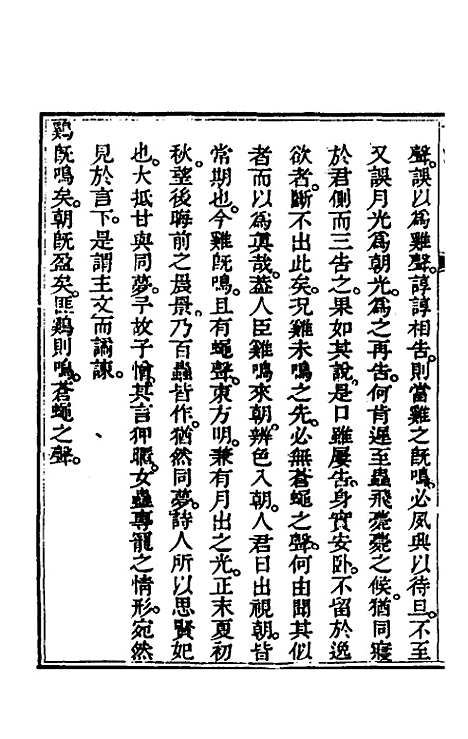 聲誤以爲雞聲諄諄相告則當雞之旣鳴必夙興以待旦不至
又誤月光爲朝光爲之再告何肯遲至蟲飛薨薨之候猶同寢
於君側而三告之果如其說是口雖屢告身實安卧不留於逸
欲者斷不出此矣况雞未鳴之先必無蒼蠅之聲何由聞其似
者而以爲眞哉蓋人臣雞鳴來朝辨色入朝人君日出視朝皆
常期也今雞旣鳴且有蠅聲東方明兼有月出之光正末夏初
秋望後晦前之晨景乃百蟲皆作猶然同夢詩人所以思賢妃
也大抵甘與同夢子故子憎其言狎暱女蟲專寵之情形宛然
見於言下是謂主文而譎諫
鷄旣鳴矣朝旣盈矣匪鷄則鳴蒼蠅之聲